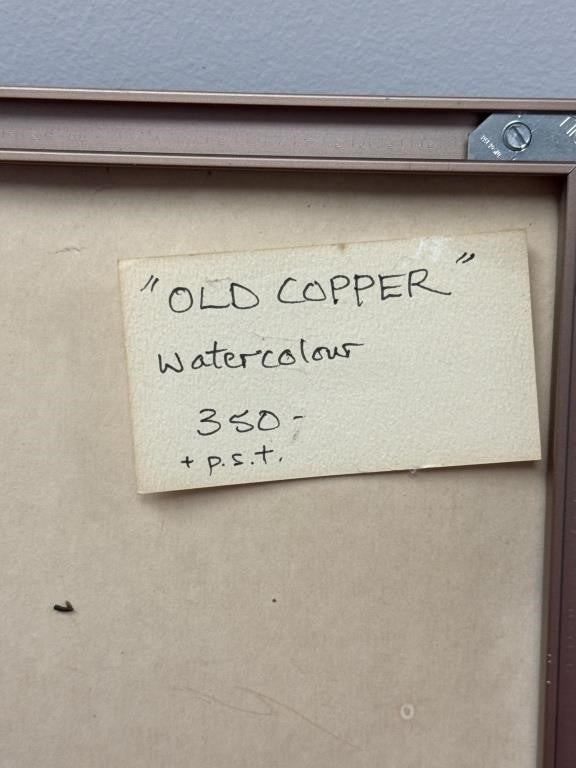 "OLD COPPER"
Watercolour
350-
+ p.s.t.